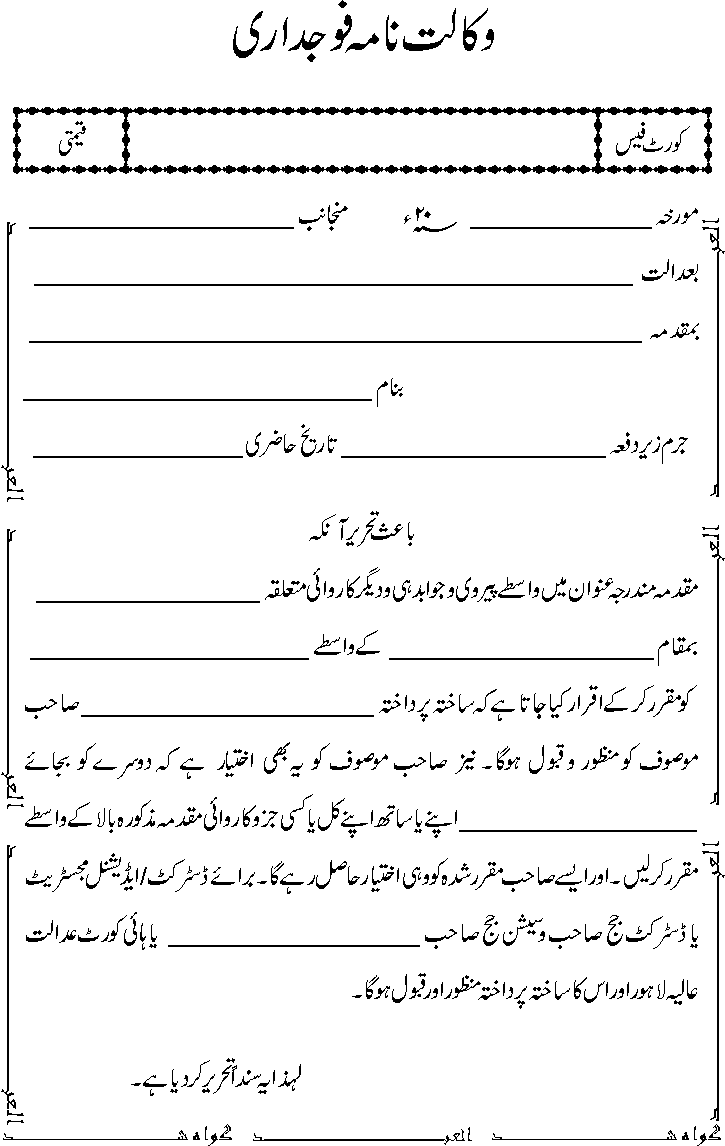 وکالت نامہ فوجداری
کورٹ فیس قیمتی
مورخہ ____________ سنہ ۲۰ء منجانب ____________
بعدالت ____________
بمقدمہ ____________
بنام ____________
جرم زیر دفعہ ____________ تاریخ حاضری ____________
باعث تحریر آنکہ
مقدمہ مندرجہ عنوان میں واسطے پیروی و جوابدہی و دیگر کاروائی متعلقہ ____________
بمقام ____________ کے واسطے ____________
کو مقرر کر کے اقرار کیا جاتا ہے کہ ساختہ پرداختہ ____________ صاحب
موصوف کو منظور و قبول ہوگا۔ نیز صاحب موصوف کو یہ بھی اختیار ہے کہ دوسرے کو بجائے
____________ اپنے یا ساتھ اپنے کل یا کسی جزو کاروائی مقدمہ مذکورہ بالا کے واسطے
مقرر کرلیں۔ اور ایسے صاحب مقرر شدہ کو وہی اختیار حاصل رہے گا۔ برائے ڈسٹرکٹ/ایڈیشنل مجسٹریٹ
یا ڈسٹرکٹ جج صاحب و سیشن جج صاحب ____________ یا ہائی کورٹ عدالت
عالیہ لاہور اور اس کا ساختہ پرداختہ منظور اور قبول ہوگا۔
لہذا یہ سنداً تحریر کر دیا ہے۔
گواہ شد ____________ العبد ____________ گواہ شد ____________
العبد
العبد
العبد
العبد
العبد
العبد